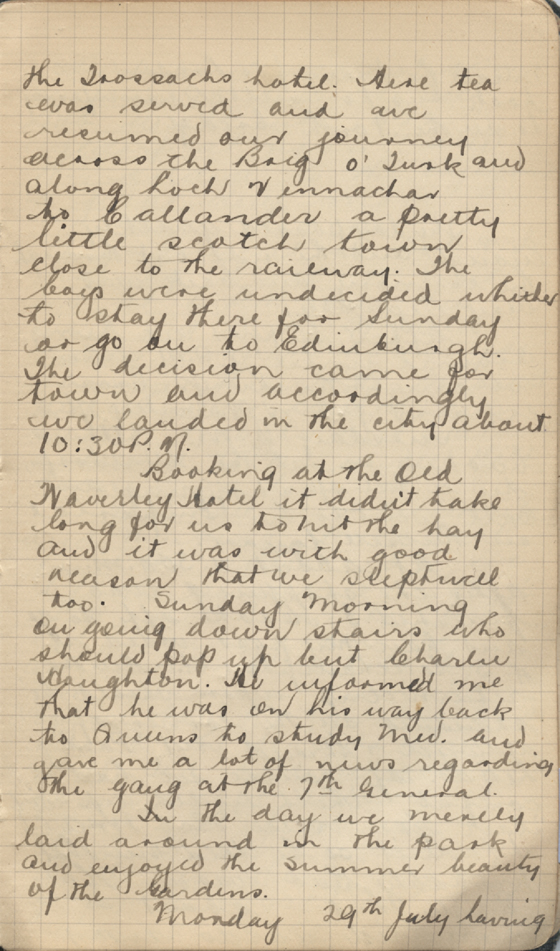 the Trossachs hotel. Here tea
was served and we
resumed our journey
across the Brig o' Turk and
along Loch Vennachar
to Callander a pretty
little scotch town
close to the railway. The
boys were undecided whither
to stay there for Sunday
or go on to Edinburgh.
The decision came for
town and accordingly
we landed in the city about
10:30 P.M.
Booking at the Old
Waverley Hotel it didn't take
long for us to hit the hay
and it was with good
reason that we slept well
too. Sunday Morning
on going down stairs who
should pop up but Charlie
Haughton. He informed me
that he was on his way back
to Queens to study Med. and
gave me a lot of news regarding
the gang at the 7th General.
In the day we merely
laid around in the park
and enjoyed the summer beauty
of the Gardens.
Monday 29th July having